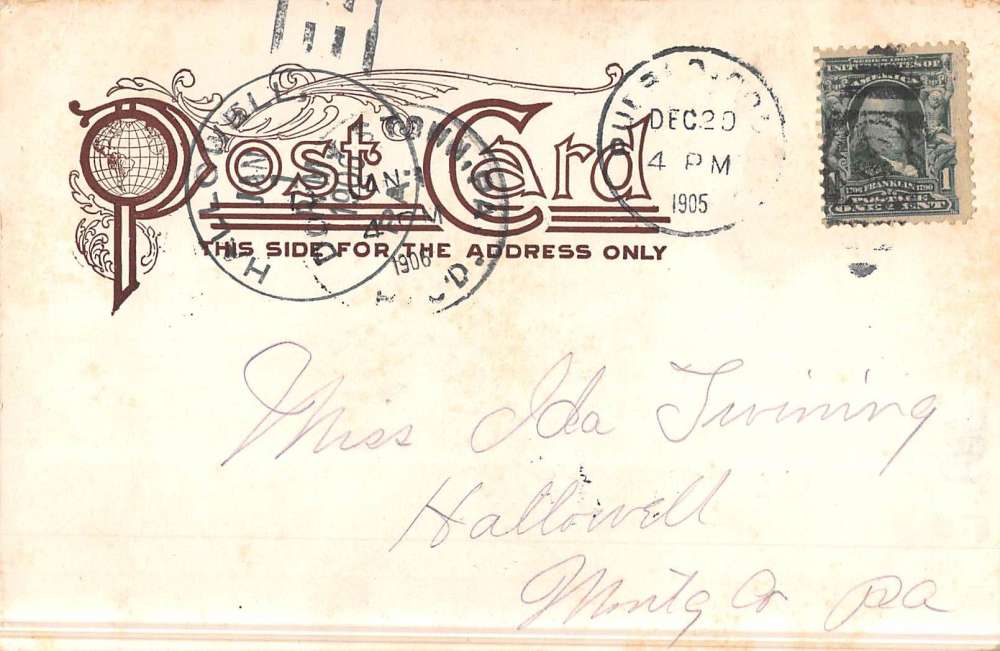 Post Card
THIS SIDE FOR THE ADDRESS ONLY
PUEBLO, COLO.
DEC 20
4 PM
1905
HATBORO
JAN
1906
SERIES 1902
UNITED STATES OF
AMERICA
1706 FRANKLIN 1790
1 1
ONE CENT
Miss Ida Twining
Hallowell
Montg Co Pa